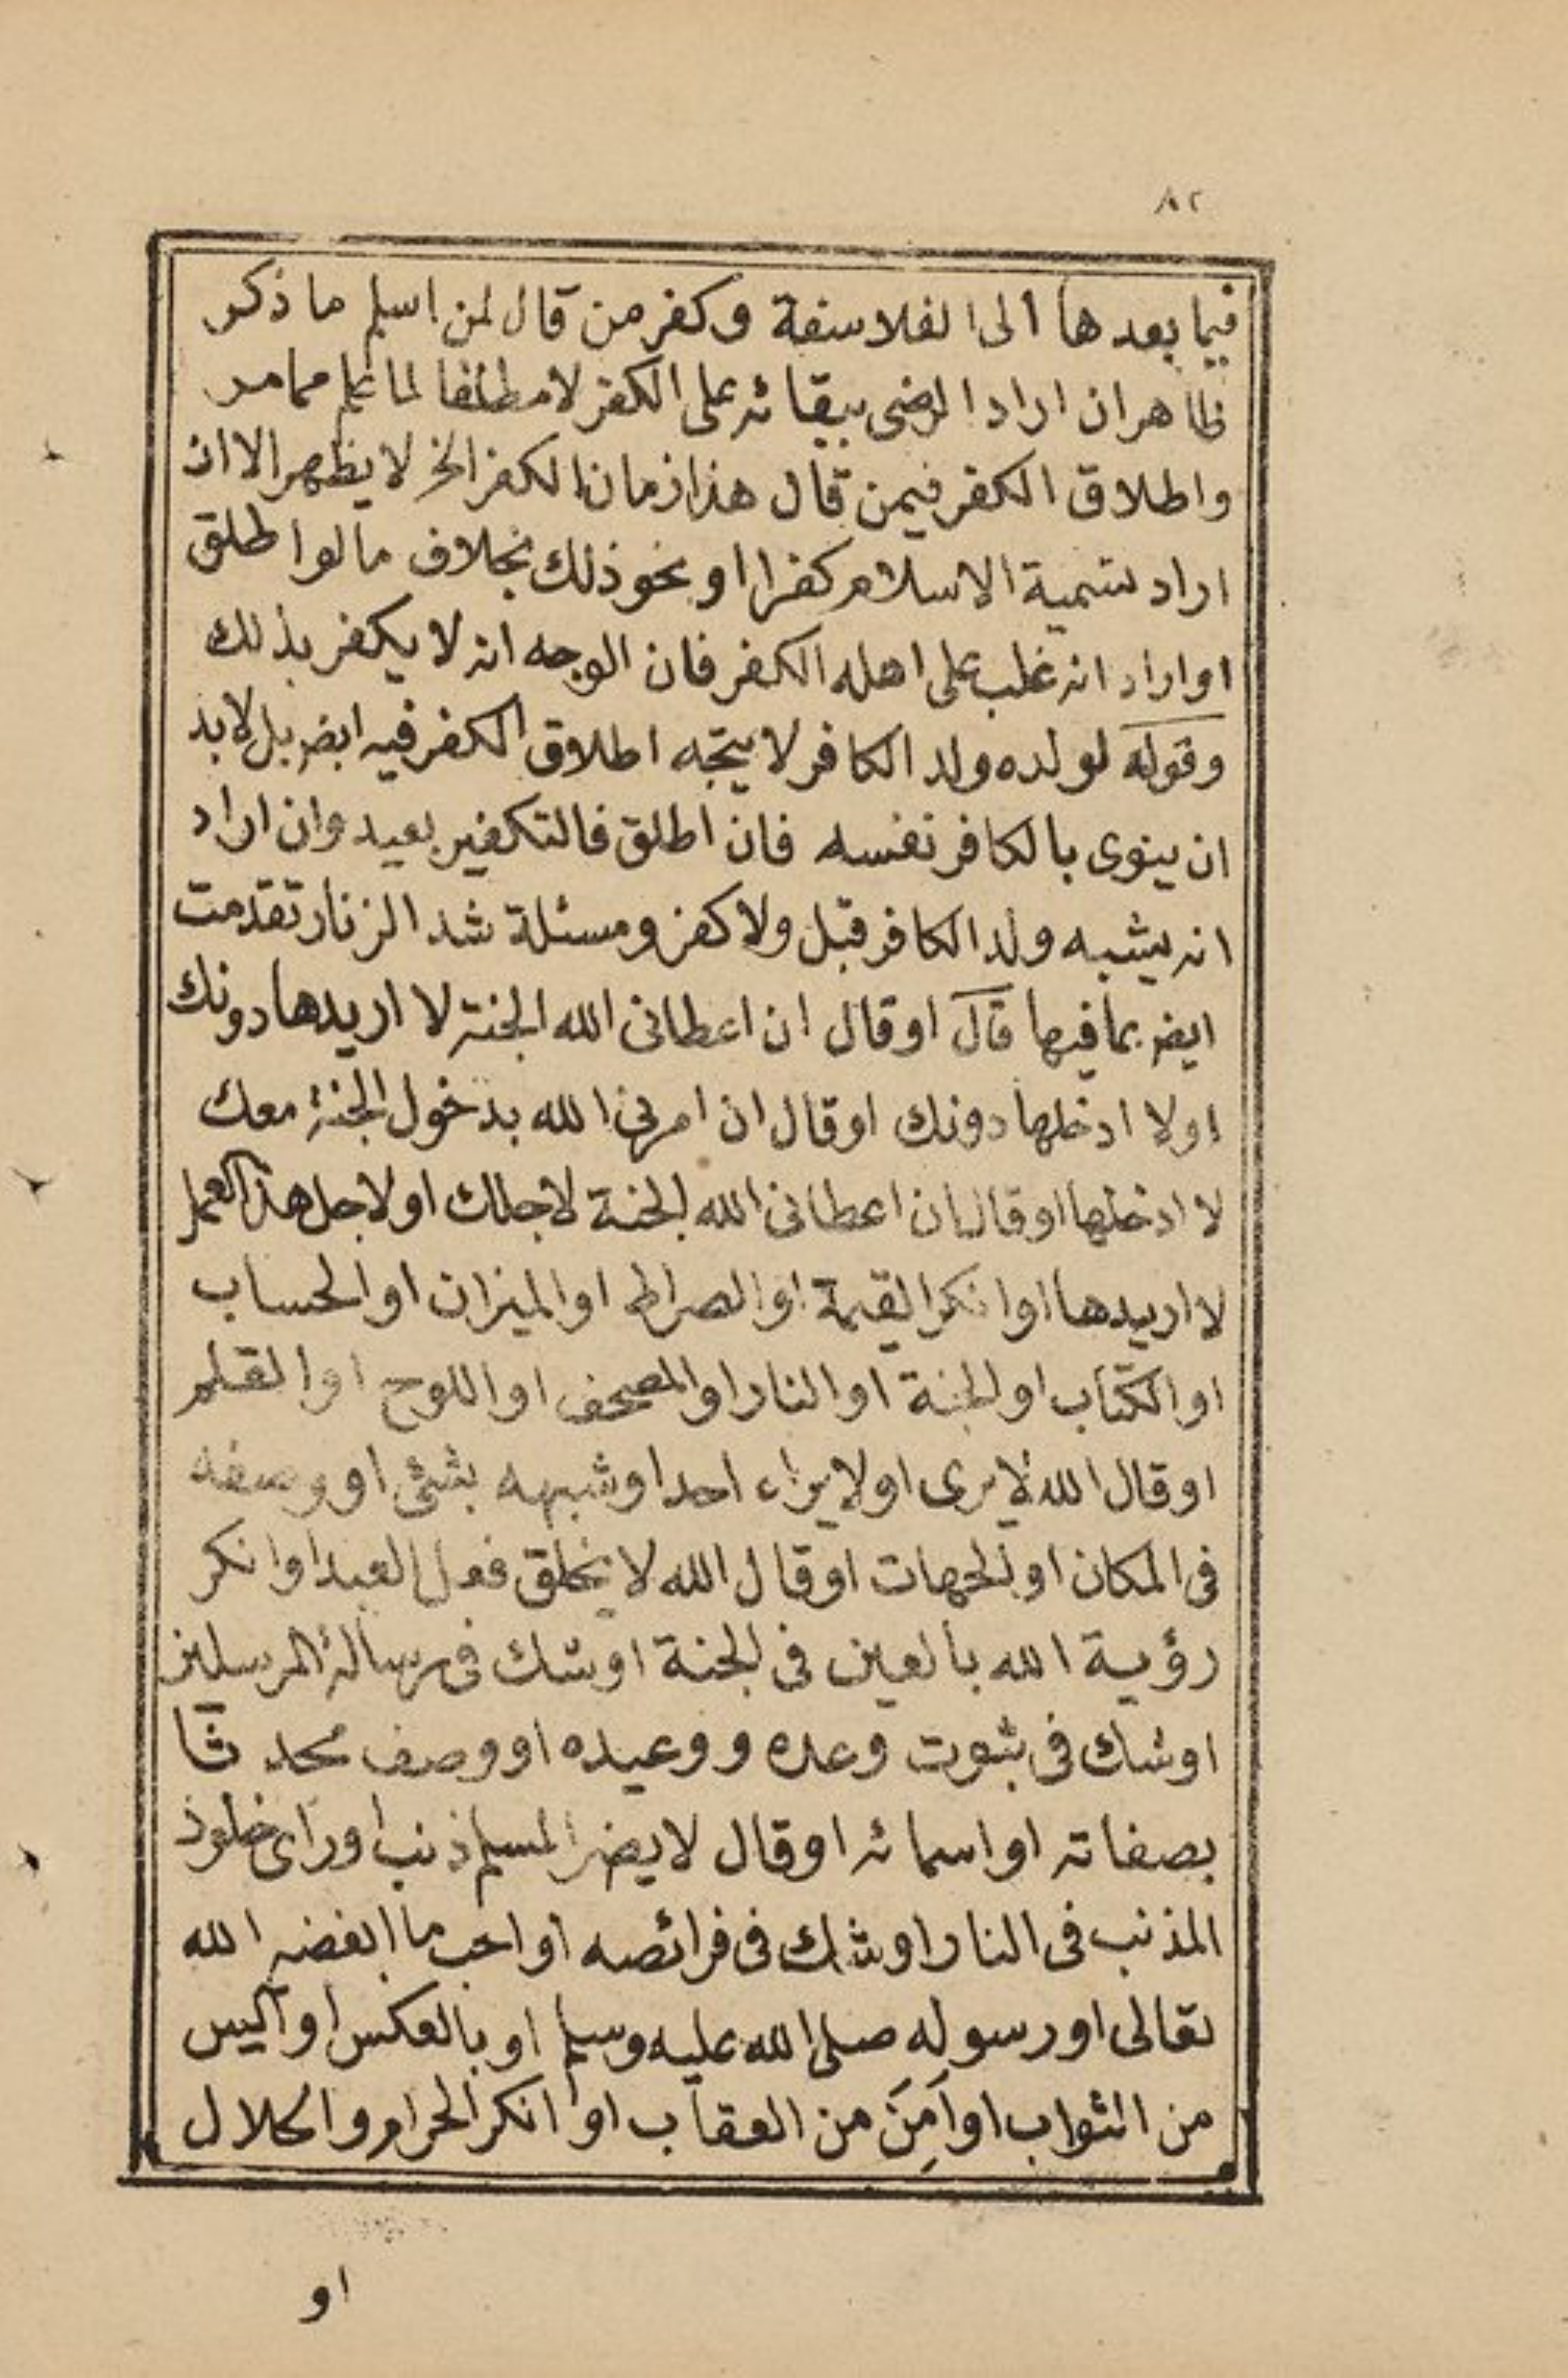 ٨٢
فيما بعدها الى الفلاسفة وكفر من قال لمن اسلم ما ذكر
ظاهر ان اراد الرضى ببقائه على الكفر لا مطلقا لما علم مما مر
واطلاق الكفر فيمن قال هذا زمان الكفر الخ لا يظهر الا ان
اراد تسمية الاسلام كفرا او نحو ذلك بخلاف ما لو اطلق
او اراد انه غلب على اهله الكفر فان الوجه انه لا يكفر بذلك
وقوله لولده ولد الكافر لا يتجه اطلاق الكفر فيه ايضر بل لابد
ان ينوى بالكافر نفسه فان اطلق فالتكفير بعيد وان اراد
انه يشبه ولد الكافر قبل ولا كفر ومسئلة شد الزنار تقدمت
ايضر بما فيها قال او قال ان اعطانى الله الجنة لا اريدها دونك
اولا ادخلها دونك او قال ان امرنى الله بدخول الجنة معك
لا ادخلها او قال ان اعطانى الله الجنة لاجلك او لاجل هذا العمل
لا اريدها او انكر القيمة او الصراط او الميزان او الحساب
او الكتاب او الجنة او النار او المصحف او اللوح او القلم
او قال الله لا يرى او لا يراه احد او شبهه بشئ او وصفه
فى المكان او الجهات او قال الله لا يخلق فعل العبد او انكر
رؤية الله بالعين فى الجنة او شك فى رسالة المرسلين
او شك فى ثبوت وعده ووعيده او وصف محدثا
بصفاته او اسمائه او قال لا يضر المسلم ذنب او راى خلود
المذنب فى النار او شك فى فرائضه او احب ما ابغضه الله
تعالى او رسوله صلى الله عليه وسلم او بالعكس او آليس
من الثواب او آمِنَ من العقاب او انكر الحرام والحلال
او